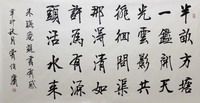 半畝方塘
一鑑開天
光雲影共
徘徊問渠
那得清如
許為有源
頭活水來
朱熹觀書有感
辛卯秋月